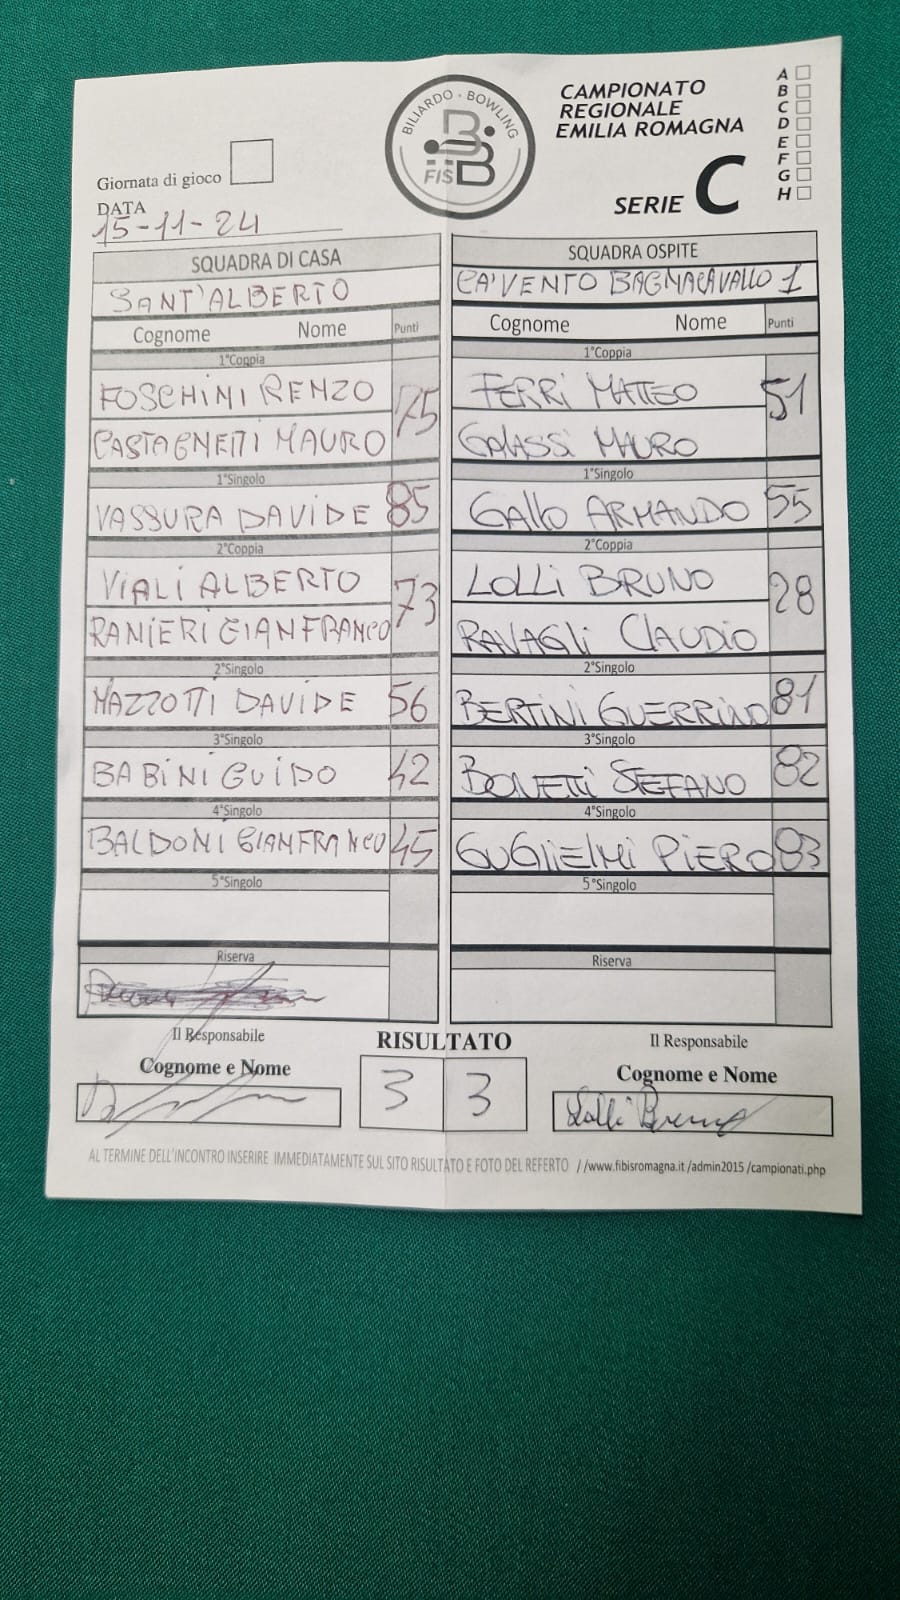 BILIARDO · BOWLING
FISBB
CAMPIONATO
REGIONALE
EMILIA ROMAGNA
SERIE C
A
B
C
D
E
F
G
H
Giornata di gioco
DATA
15-11-24
SQUADRA DI CASA
SANT'ALBERTO
Cognome Nome Punti
1°Coppia
FOSCHINI RENZO 75
CASTAGNETTI MAURO
1°Singolo
VASSURA DAVIDE 85
2°Coppia
VIALI ALBERTO 73
RANIERI GIANFRANCO
2°Singolo
MAZZOTTI DAVIDE 56
3°Singolo
BABINI GUIDO 42
4°Singolo
BALDONI GIANFRANCO 45
5°Singolo
Riserva
Il Responsabile
Cognome e Nome
SQUADRA OSPITE
CA'VENTO BAGNACAVALLO 1
Cognome Nome Punti
1°Coppia
FERRI MATTEO 51
GALASSI MAURO
1°Singolo
GALLO ARMANDO 55
2°Coppia
LOLLI BRUNO 28
RAVAGLI CLAUDIO
2°Singolo
BERTINI GUERRINO 81
3°Singolo
BONETTI STEFANO 82
4°Singolo
GUGLIELMI PIERO 83
5°Singolo
Riserva
Il Responsabile
Cognome e Nome
Lolli Bruno
RISULTATO
3 3
AL TERMINE DELL'INCONTRO INSERIRE IMMEDIATAMENTE SUL SITO RISULTATO E FOTO DEL REFERTO //www.fibisromagna.it/admin2015/campionati.php